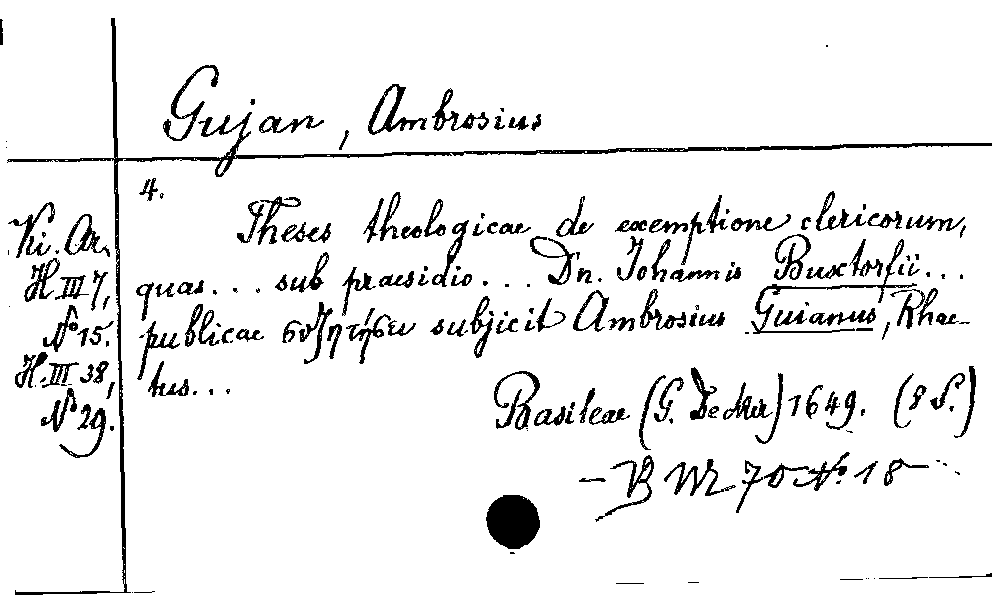 Gujan, Ambrosius
4.
Ki. Ar.
H III 7,
No 15.
H. III 38,
No 29.
Theses theologicae de exemptione clericorum,
quas... sub praesidio... Dn. Johannis Buxtorfii...
publicae συζητήσει subjicit Ambrosius Guianus, Rhae-
tus...
Basileae (G. Decker) 1649. (8 S.)
No 18